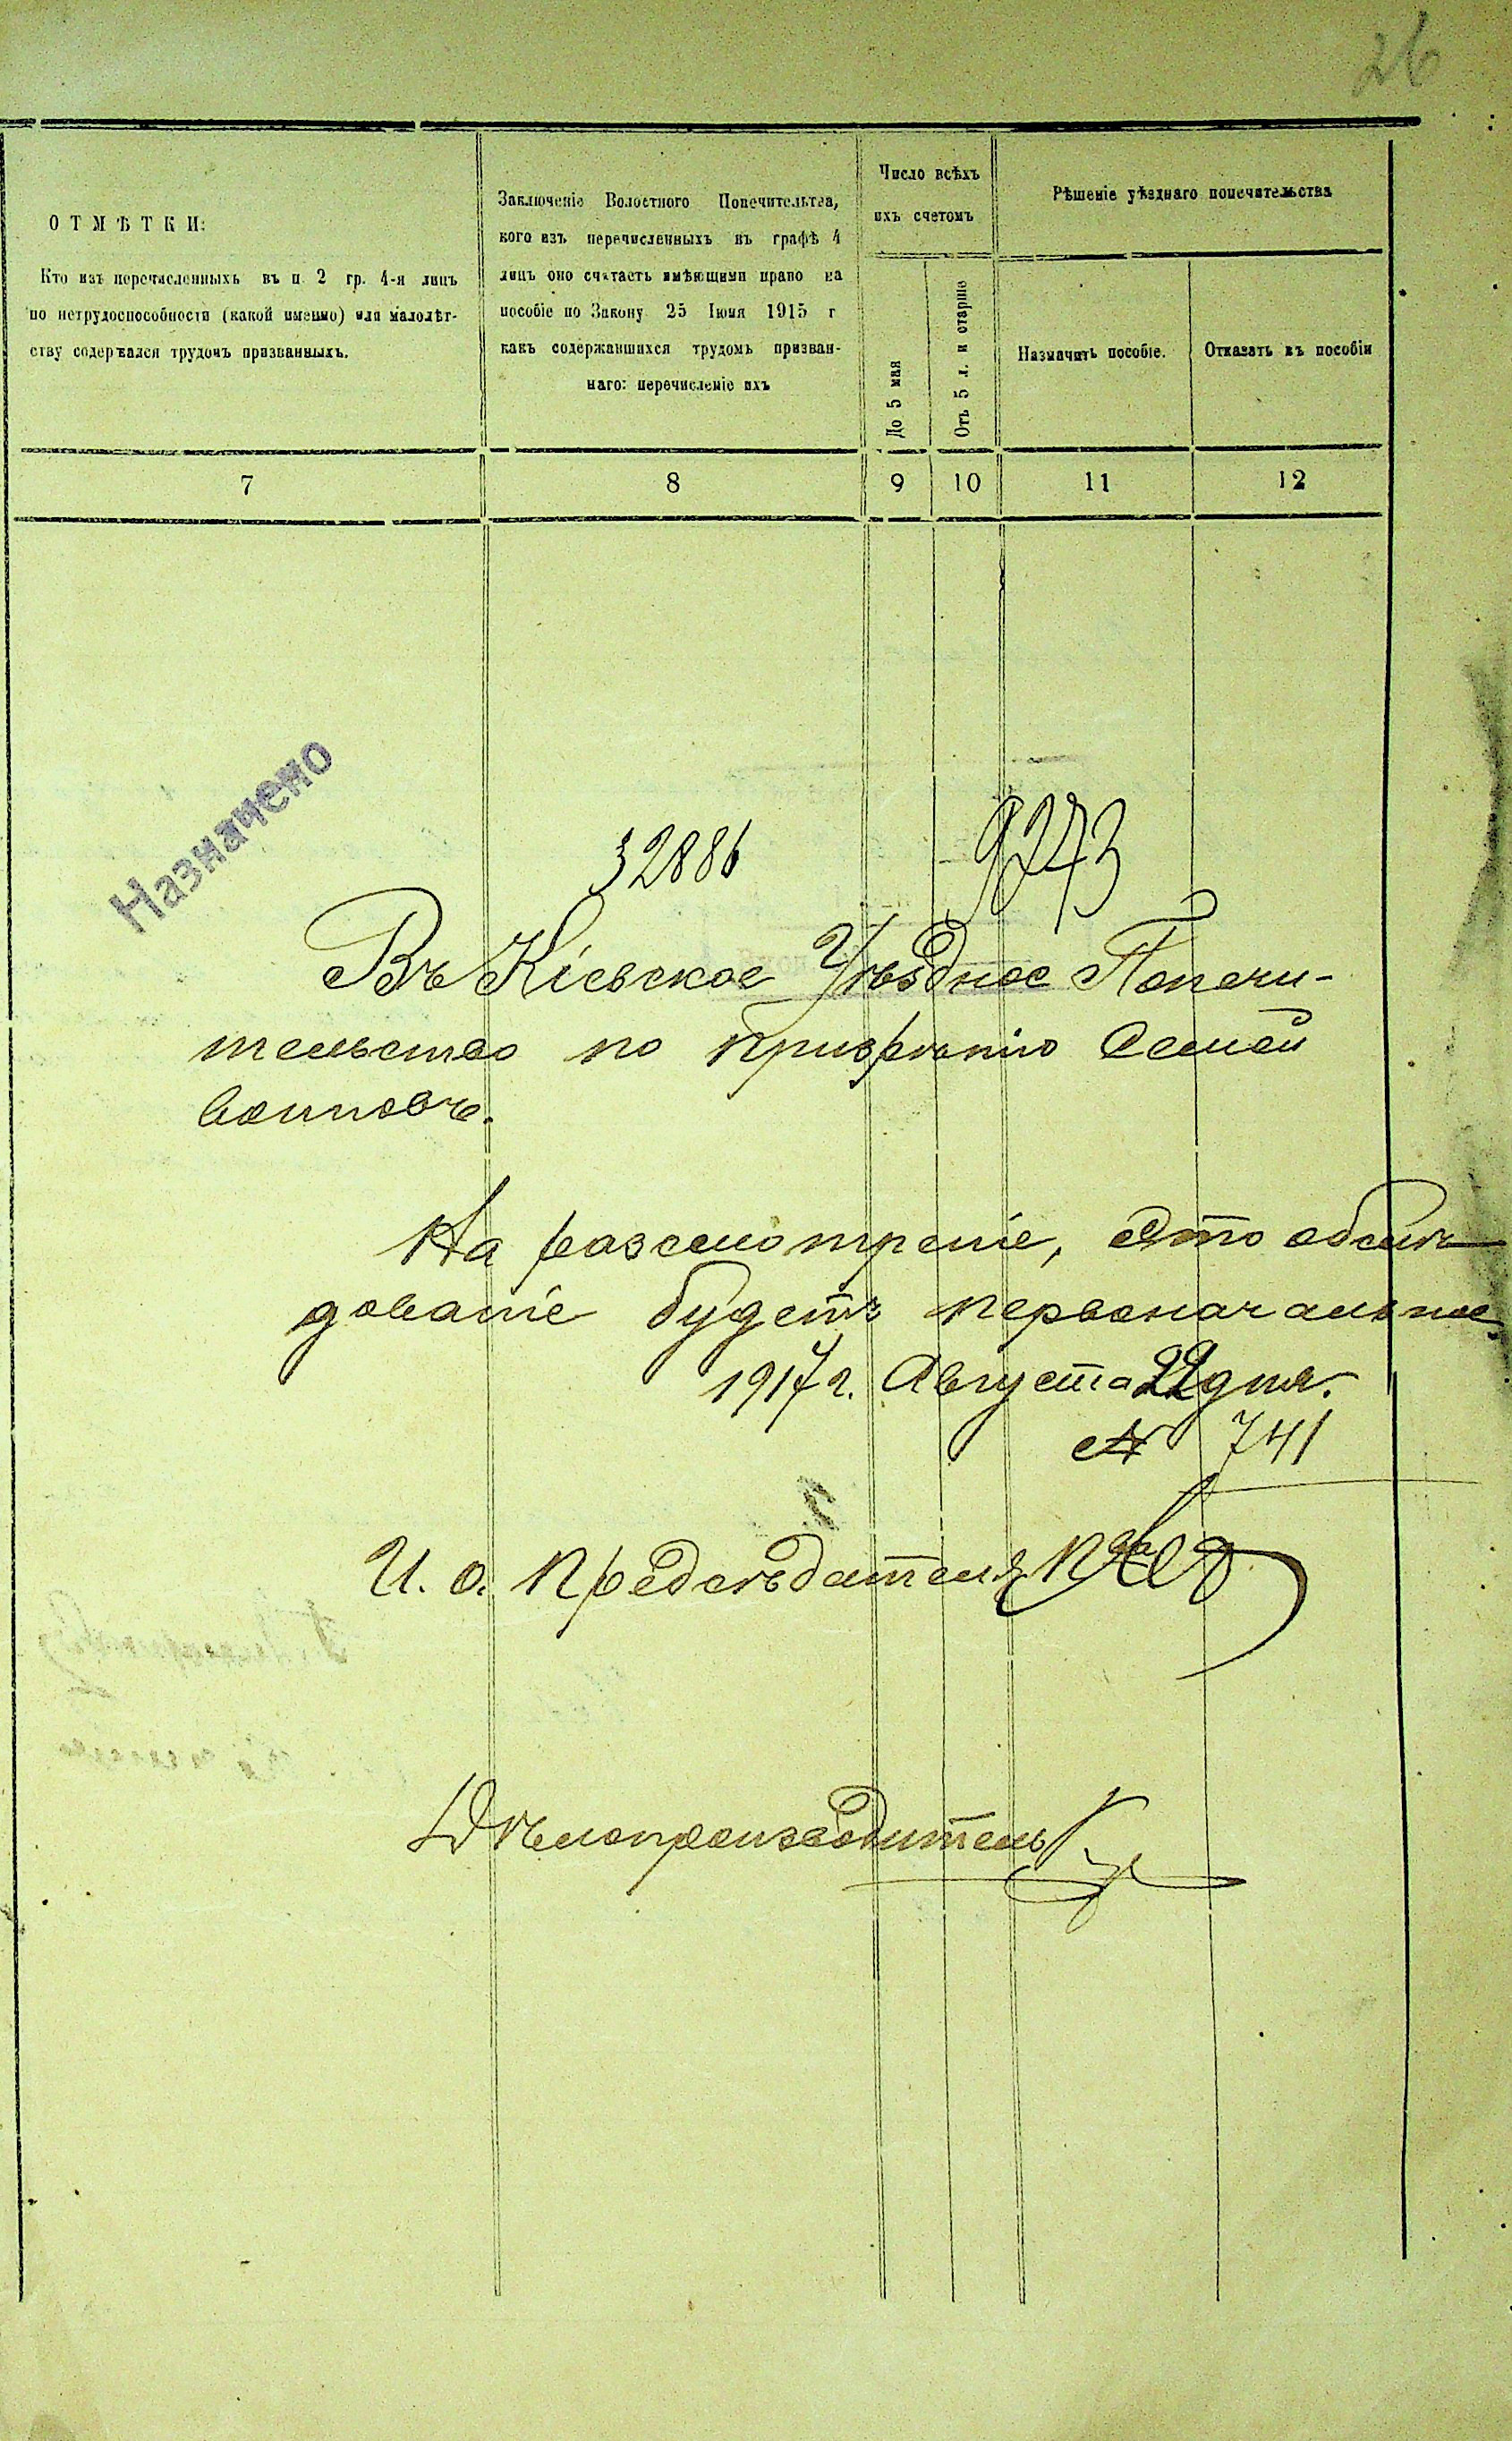 26
О Т М Ѣ Т К И:
Кто изъ перечисленныхъ въ п 2 гр. 4-я лицъ
по нетрудоспособности (какой именно) или малолѣт-
ству содержался трудомъ призванныхъ.
Заключеніе Волостного Попечительтва,
кого изъ перечисленныхъ въ графѣ 4
лицъ оно считаетъ имѣющими право на
пособіе по Закону 25 Іюня 1915 г
какъ содержавшихся трудомъ призван-
наго: перечисленіе ихъ
Число всѣхъ
ихъ счетомъ
До 5 мая
Отъ 5 л. и старше
Рѣшеніе уѣзднаго попечительства
Назначить пособіе.
Отказать въ пособіи
7 8 9 10 11 12
Назначено
32886 9243
Въ Кіевское Уѣздное Попечи-
тельство по призрѣнію Семей
воиновъ.
На разсмотреніе, Это обслѣ-
дованіе будетъ первоначальное.
1917 г. Августа 22 дня.
№ 741
И. о. Предсѣдателя
Дѣлопроизводитель